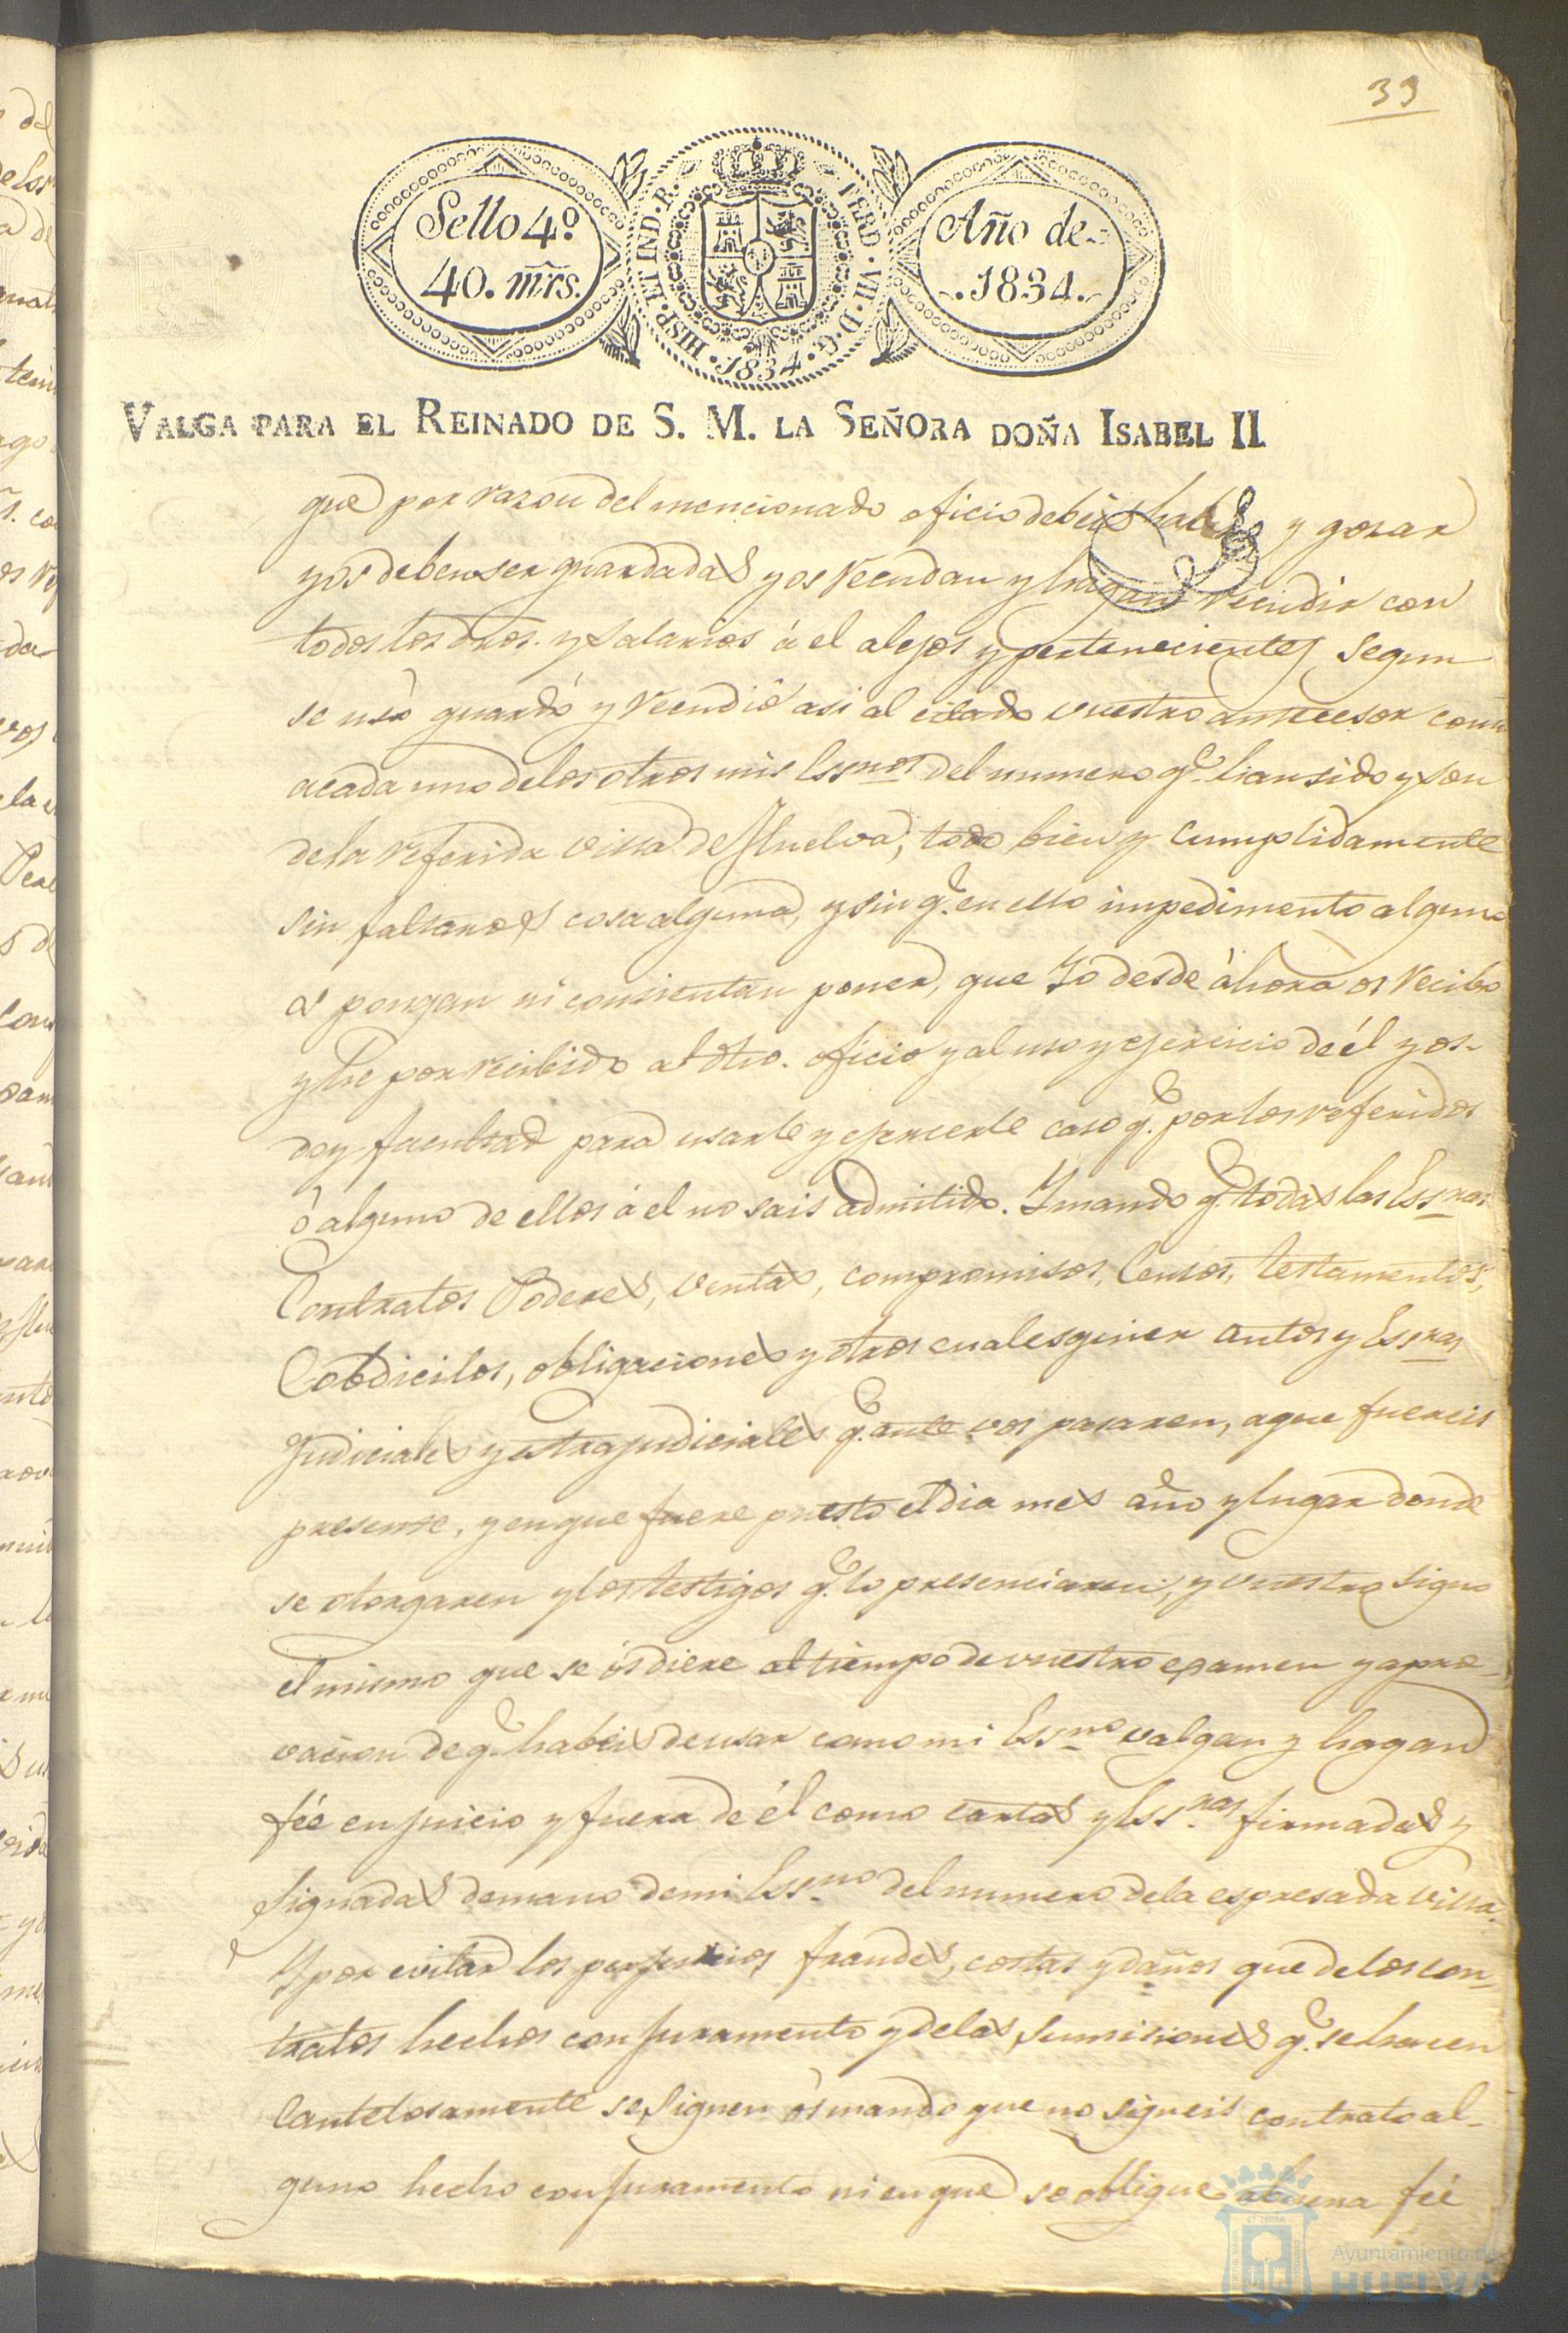 39
Sello 4º
40. mrs.
HISP. ET IND. R.
FERD. VII. D. G.
1834.
Año de
1834.
VALGA PARA EL REINADO DE S. M. LA SEÑORA DOÑA ISABEL II
que por razon del mencionado oficio debeis haber y gozar
y os deben ser guardadas y os recudan y hagan recudir con
todos los dros. y salarios á el alejos y pertenecientes segun
se usó guardó y recudió asi al citado vuestro antecesor como
a cada uno de los otros mis Essnos del numero q.e han sido y son
de la referida villa de Huelva, todo bien y cumplidamente
sin faltaros cosa alguna, y sin q.e en ello impedimento alguno
os pongan ni consientan poner, que Yo desde áhora os recibo
y he por recibido al dho. oficio y al uso y ejercicio de él y os
doy facultad para usarle y ejercerle caso q.e por los referidos
ó alguno de ellos á el no sais admitido. Y mando q.e todas las Essras
Contratos Poderes, ventas, compromisos, Censos, testamentos,
Cobdicilos, obligaciones y otros cualesquier autos y Essras
Judiciales y extrajudiciales q.e ante vos pasaren, a que fuereis
presente, y en que fuere puesto el dia mes año y lugar donde
se otorgaren y los testigos q.e lo presenciaren, y vuestro signo
el mismo que se ós diere al tiempo de vuestro examen y apro-
vacion de q.e habeis de usar como mi Essno valgan y hagan
fée en juicio y fuera de él como cartas y Essras firmadas y
signadas de mano de mi Essno del numero de la espresada villa.
Y por evitar los perjuicios fraudes, costas y daños que de los con-
tratos hechos con juramento y de las sumisiones q.e se hacen
Cautelosamente se siguen ós mando que no signeis contrato al-
guno hecho con juramento ni en que se obligue a buena fée
Ayuntamiento de
HUELVA